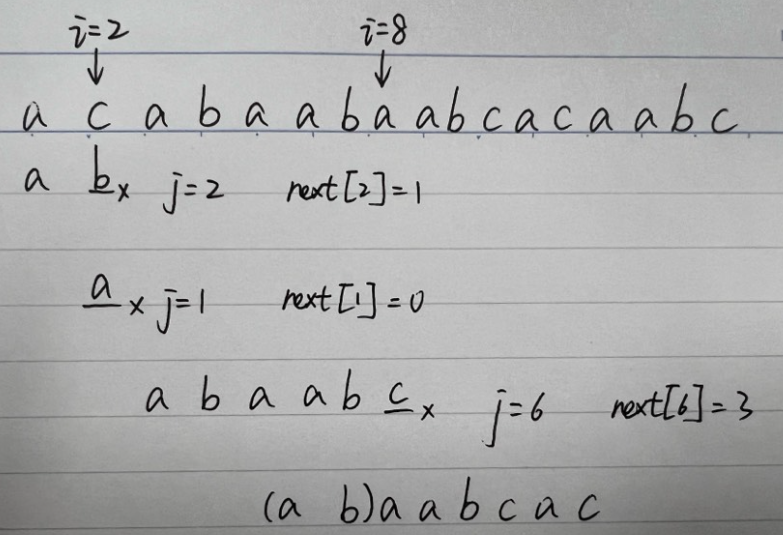 i=2 i=8
a c a b a a b a a b c a c a a b c
a b x j=2 next[2]=1
a x j=1 next[1]=0
a b a a b c x j=6 next[6]=3
(a b)a a b c a c